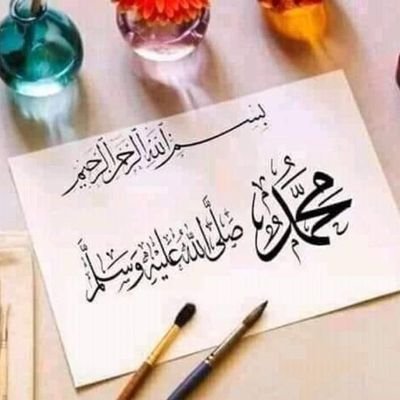 بِسْمِ اللَّهِ الرَّحْمَنِ الرَّحِيمِ
مُحَمَّدٌ صَلَّى اللَّهُ عَلَيْهِ وَسَلَّمَ